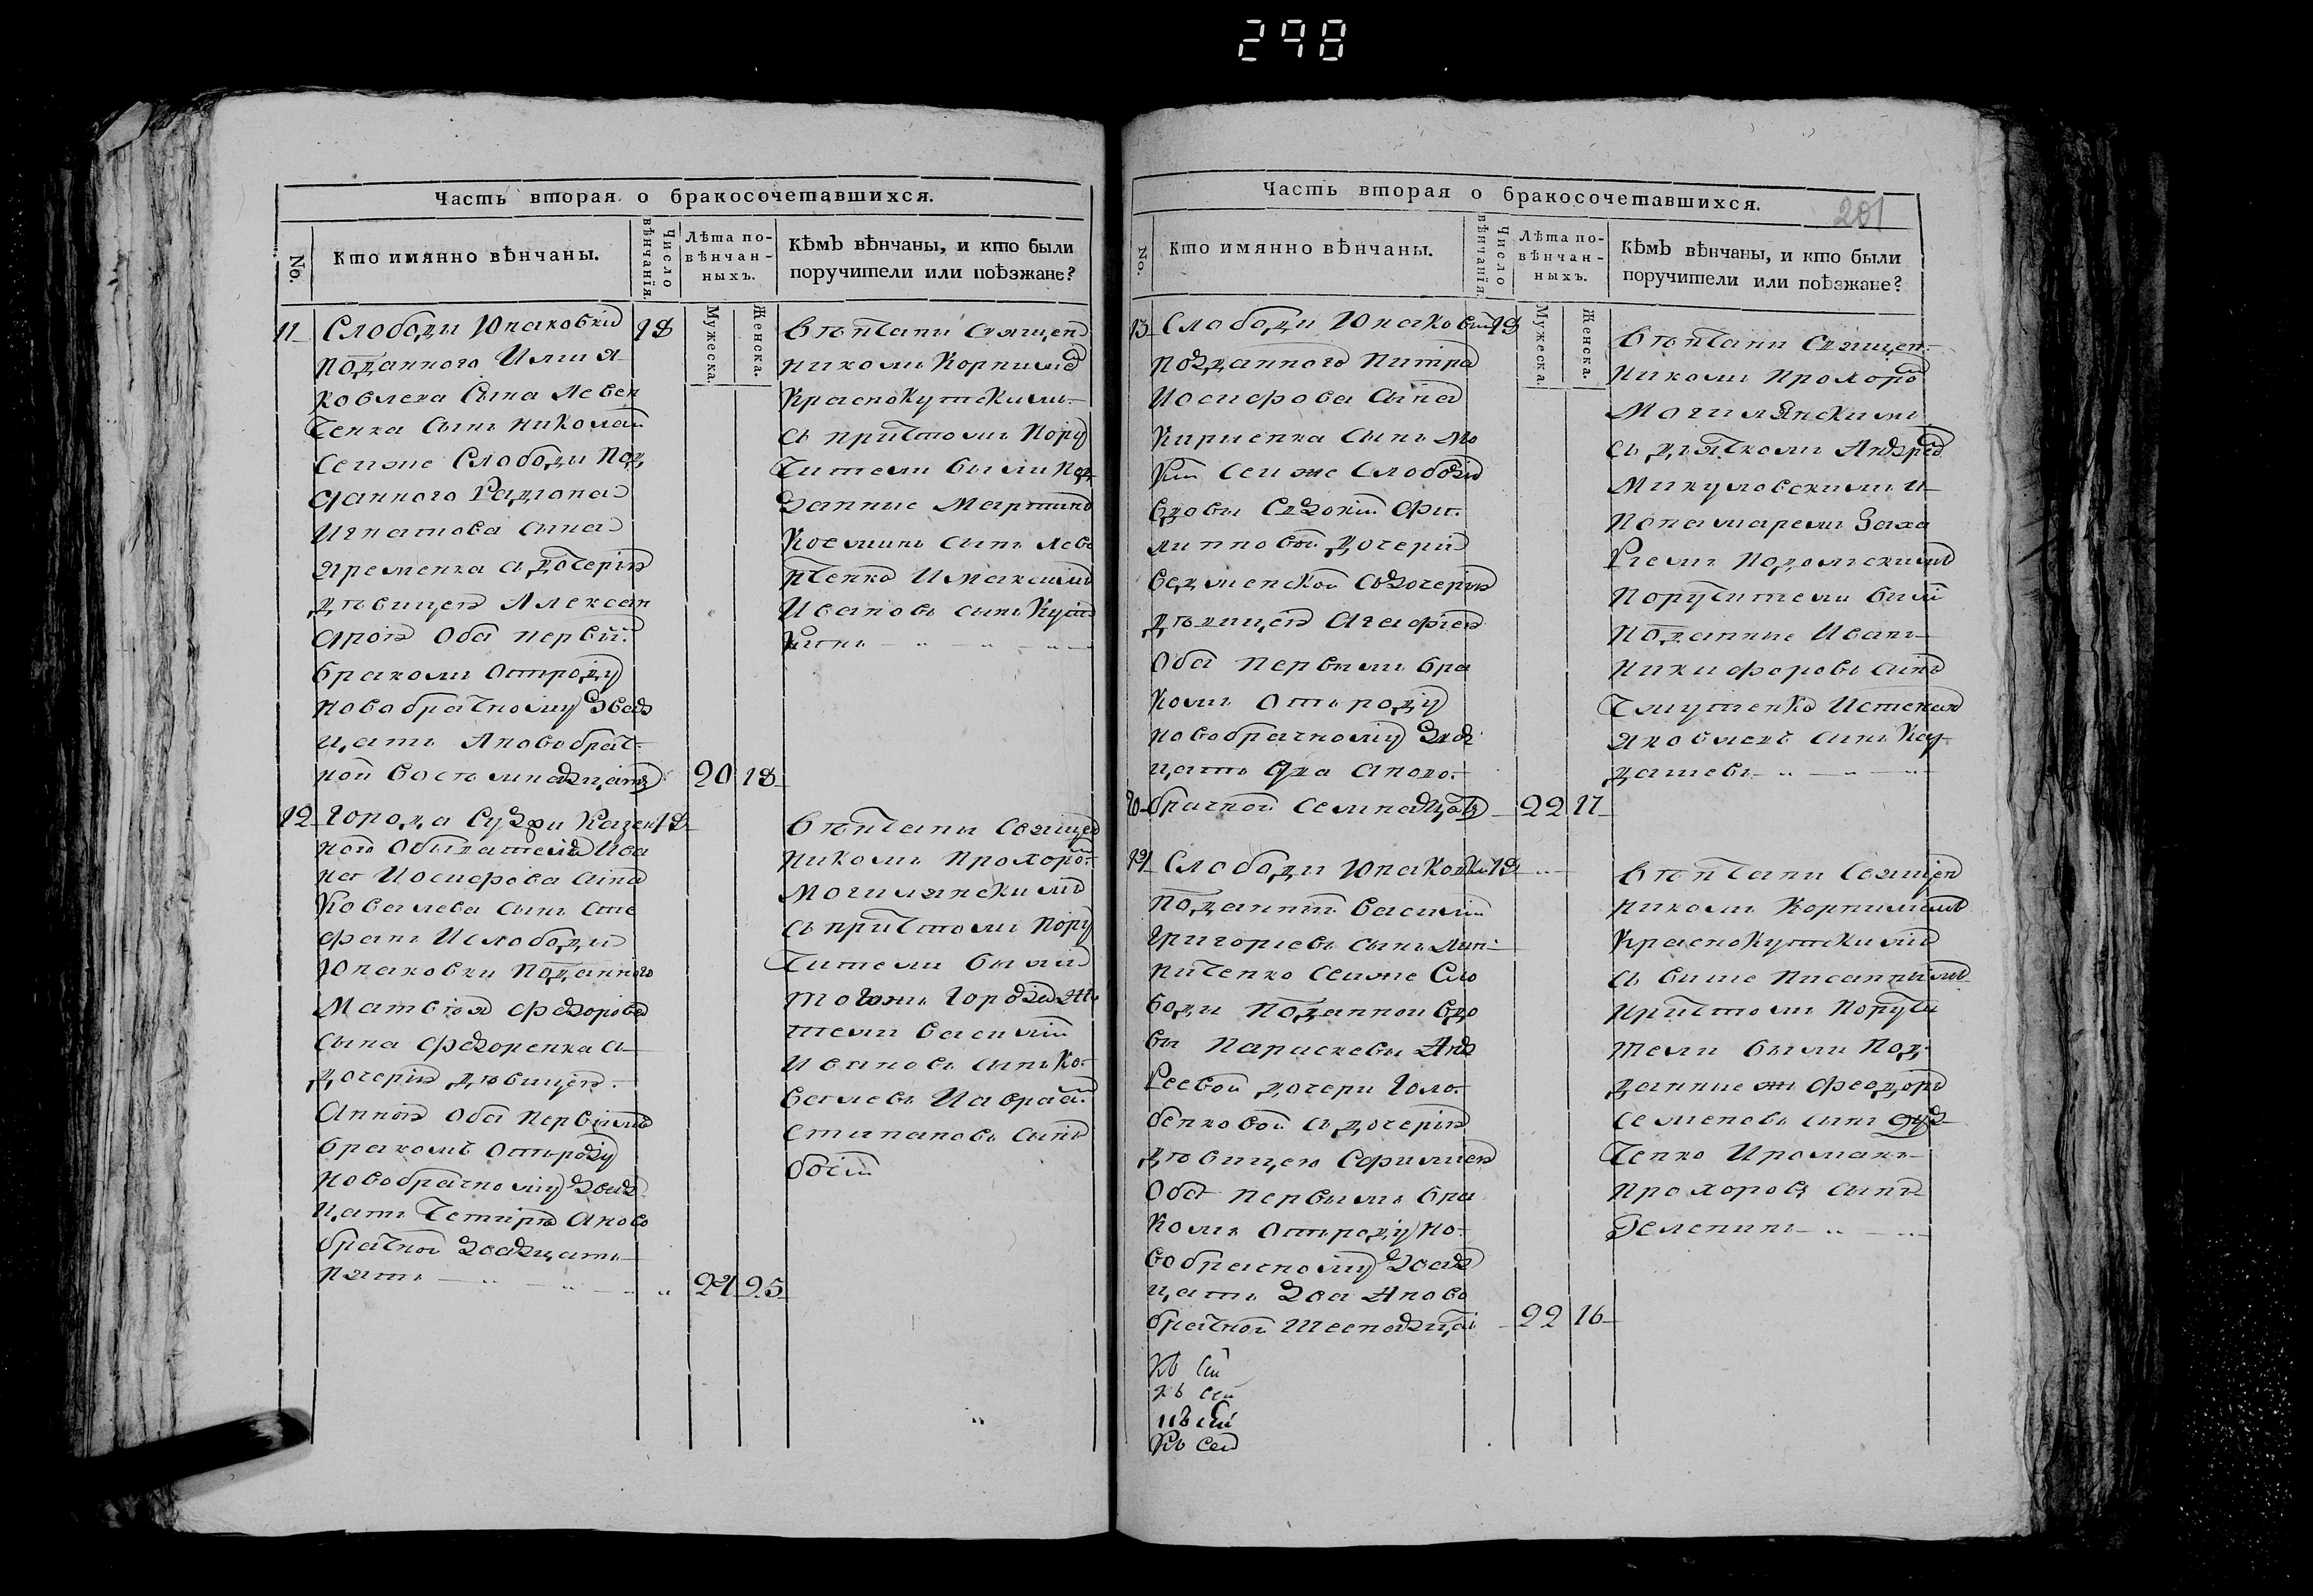 298
Часть вторая о бракосочетавшихся.
No.
Кто имянно вѣнчаны.
Число вѣнчанія.
Лѣта по-
вѣнчан-
ныхъ.
Мужеска.
Женска.
Кѣмъ вѣнчаны, и кто были
поручители или поѣзжане?
11 Слободи Юнаковки 18
Поданного Илии Я
ковлева Сына Левен
ченка Сынъ Николай
Сеиже Слободи Под
данного Радиона
Игнатова сына
Яременка з дочерию
дѣвицею Алексан
дрою Оба первий
бракомъ Отроду
Новобрачному Двад
цать Ановобрач
ной Восѣмнадцать 20 18
Вѣнчани Священ
никомъ Корнилие
Краснокутскимъ
съ причтомъ Пору
чители были Под
данние Мартинъ
Косминъ сынъ Лево
нченко Имаксимъ
Ивановъ сынъ
12 Города Сумъ Казен 18
ного Обывателя Ива
на Иосифова сина
Ковалева сынъ Сте
фанъ Ислободи
Юнаковки Поданного
Матвѣя Федорова
Сына Федоренка съ
дочерию дѣвицею
Анною Оба первимъ
бракомъ Отъроду
Новобрачному двад
цать Четире Аново
брачной двадцать
пять 24 25
Вѣнчаны Священ
никомъ Прохоро
Могилянскимъ
съ причтомъ Пору
чители были
тогожъ города жи
тели Василий
Ивановъ сынъ Ко
валевъ
Степановъ сынъ
Часть вторая о бракосочетавшихся.
201
No.
Кто имянно вѣнчаны.
Число вѣнчанія.
Лѣта по-
вѣнчан-
ныхъ.
Мужеска.
Женска.
Кѣмъ вѣнчаны, и кто были
поручители или поѣзжане?
13 Слободи Юнаковки 18
Подданного Питра
Иосифова сина
Кириенка сынъ Мо
кий Сеиже Слободи
вдовы Євдокии Фи
липповой дочери
Ведменской Съдочерию
дѣвицею Агафиею
Оба первимъ бра
комъ Отъроду
новобрачному двад
цать два Аново
брачной семнадцать 22 17
Вѣнчани Священ
никомъ Прохоро
Могилянскимъ
съ дячкомъ Андрее
Микуловскимъ и
Понамаремъ Заха
риемъ Подолскимъ
Поручители били
Поданние Иванъ
Никифоровъ синъ
Чмутенко Истепан
Яковлевъ синъ Кар
дашевъ
14 Слободи Юнаковки 18
Поданний Василий
Григориевъ сынъ Лит
ниченко Сеиже Сло
боди Поданной вдо
вы Параскевы Анд
реевой дочери Голо
бенковой з дочерию
дѣвицею Єфимиею
Оба первымъ бра
комъ Отроду но
вобрачному двад
цать два Аново
брачной шеснадцать 22 16
Вѣнчани Священ
никомъ Корнилиемъ
Краснокутскимъ
съ више писаннымъ
Причтомъ Поручи
тели были Под
данние Феодоръ
Семеновъ синъ Дуд
ченко Ироманъ
Прохоровъ сынъ
Зеленинъ